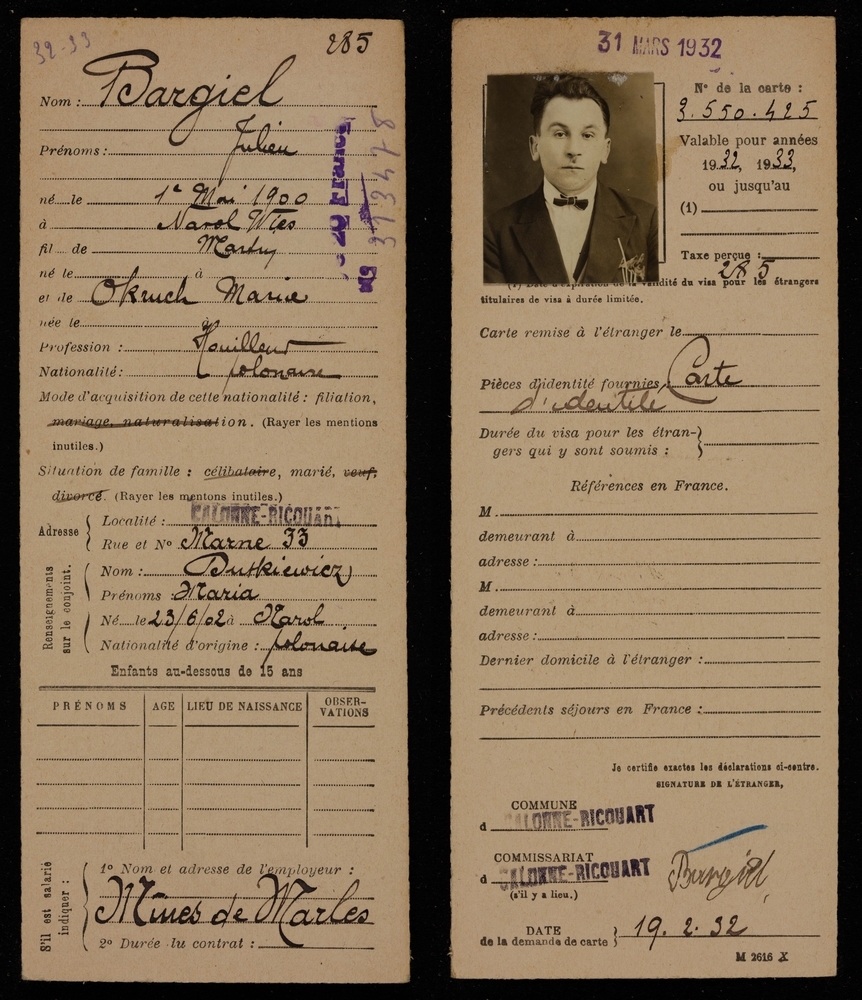 32-33
285
Nom : Bargiel
Prénoms : Julien
né le 1er Mai 1900
à Narol Wies
fil de Martin
né le à
et de Okruch Marie
née le à
Profession : Houilleur
Nationalité : polonaise
Mode d'acquisition de cette nationalité : filiation,
mariage, naturalisation. (Rayer les mentions
inutiles.)
Situation de famille : célibataire, marié, veuf,
divorcé. (Rayer les mentons inutiles.)
Adresse
Localité : CALONNE-RICOUART
Rue et No Marne 33
Renseignements
sur le conjoint.
Nom : Buskiewicz
Prénoms : Maria
Né le 23/6/02 à Narol
Nationalité d'origine : polonaise
Enfants au-dessous de 15 ans
PRÉNOMS AGE LIEU DE NAISSANCE OBSER-
VATIONS
S'il est salarié
indiquer :
1o Nom et adresse de l'employeur :
Mines de Marles
2o Durée du contrat :
373478
31 MARS 1932
No de la carte :
3.550.425
Valable pour années
1932, 1933,
ou jusqu'au
(1)
Taxe perçue :
285
(1) Date d'expiration de la validité du visa pour les étrangers
titulaires de visa à durée limitée.
Carte remise à l'étranger le
Pièces d'identité fournies Carte
d'identité
Durée du visa pour les étran-
gers qui y sont soumis :
Références en France.
M.
demeurant à
adresse :
M.
demeurant à
adresse :
Dernier domicile à l'étranger :
Précédents séjours en France :
Je certifie exactes les déclarations ci-contre.
SIGNATURE DE L'ÉTRANGER,
COMMUNE
d CALONNE-RICOUART
COMMISSARIAT
d CALONNE-RICOUART
(s'il y a lieu.)
Bargiel
DATE
de la demande de carte
19. 2. 32
M 2616 X